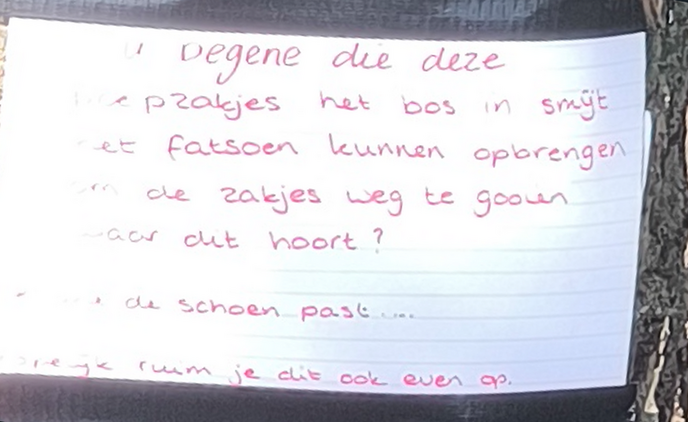 Degene die deze
pzakjes het bos in smijt
het fatsoen kunnen opbrengen
om de zakjes weg te gooien
waar dit hoort?
de schoen past....
ruim je dit ook even op.